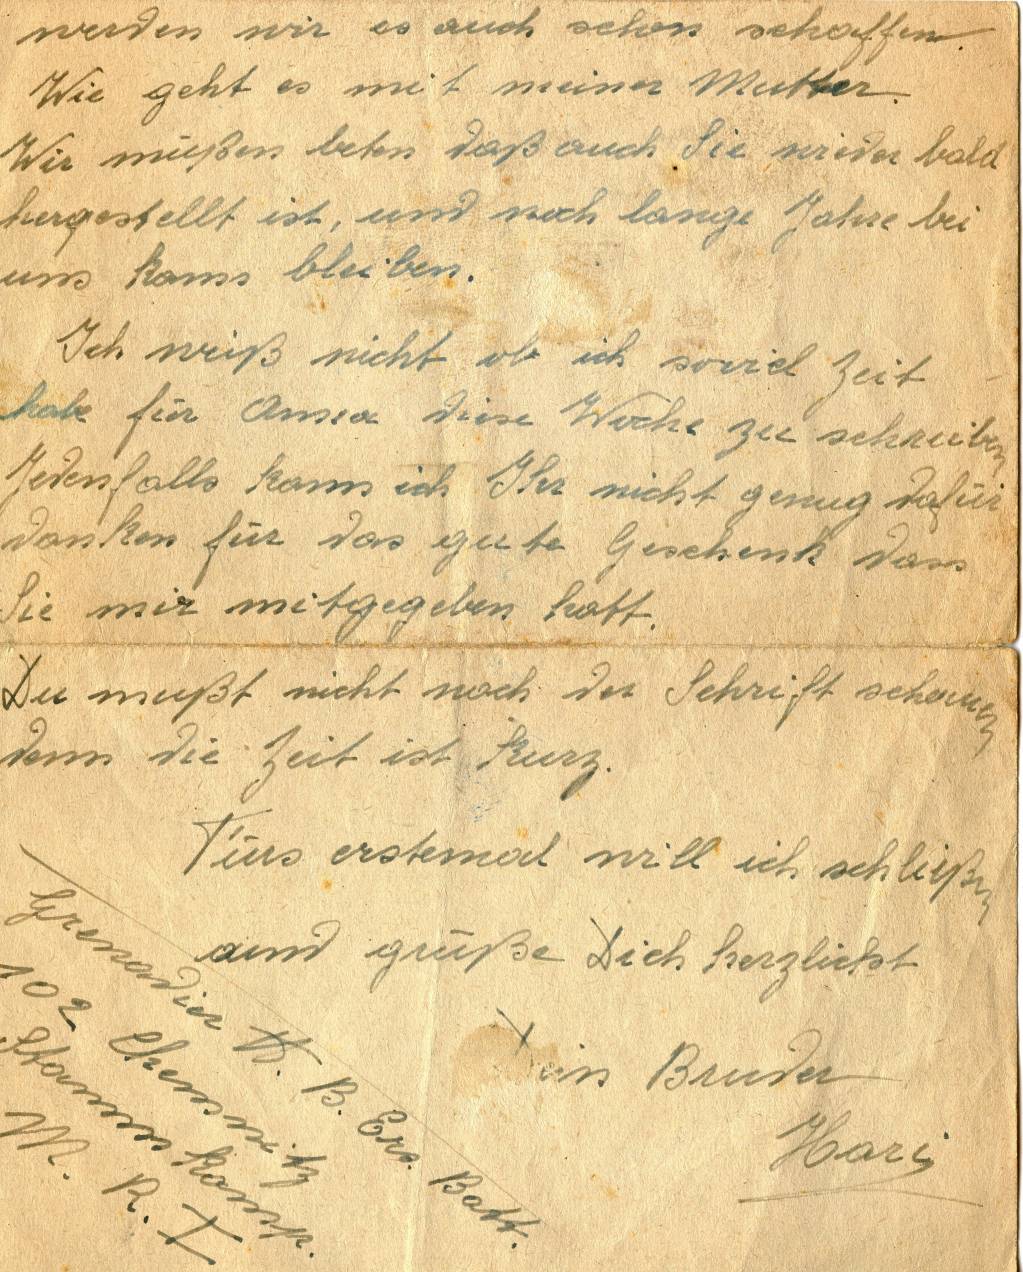 werden wir es auch schon schaffen.
Wie geht es mit meiner Mutter.
Wir müßen beten daß auch Sie wieder bald
hergestellt ist, und noch lange Jahre bei
uns kann bleiben.
Ich weiß nicht ob ich soviel Zeit
habe für Anna diese Woche zu schreiben
Jedenfalls kann ich Ihr nicht genug dafür
danken für das gute Geschenk dass
Sie mir mitgegeben hatt.
Du mußt nicht nach der Schrift schauen
denn die Zeit ist kurz.
Fürs erstemal will ich schließen
und grüße Dich herzlichst
Dein Bruder
Hari
Grenadier W. B. Ers. Batt.
102 Chemnitz
Stammkomp.
M. R. I